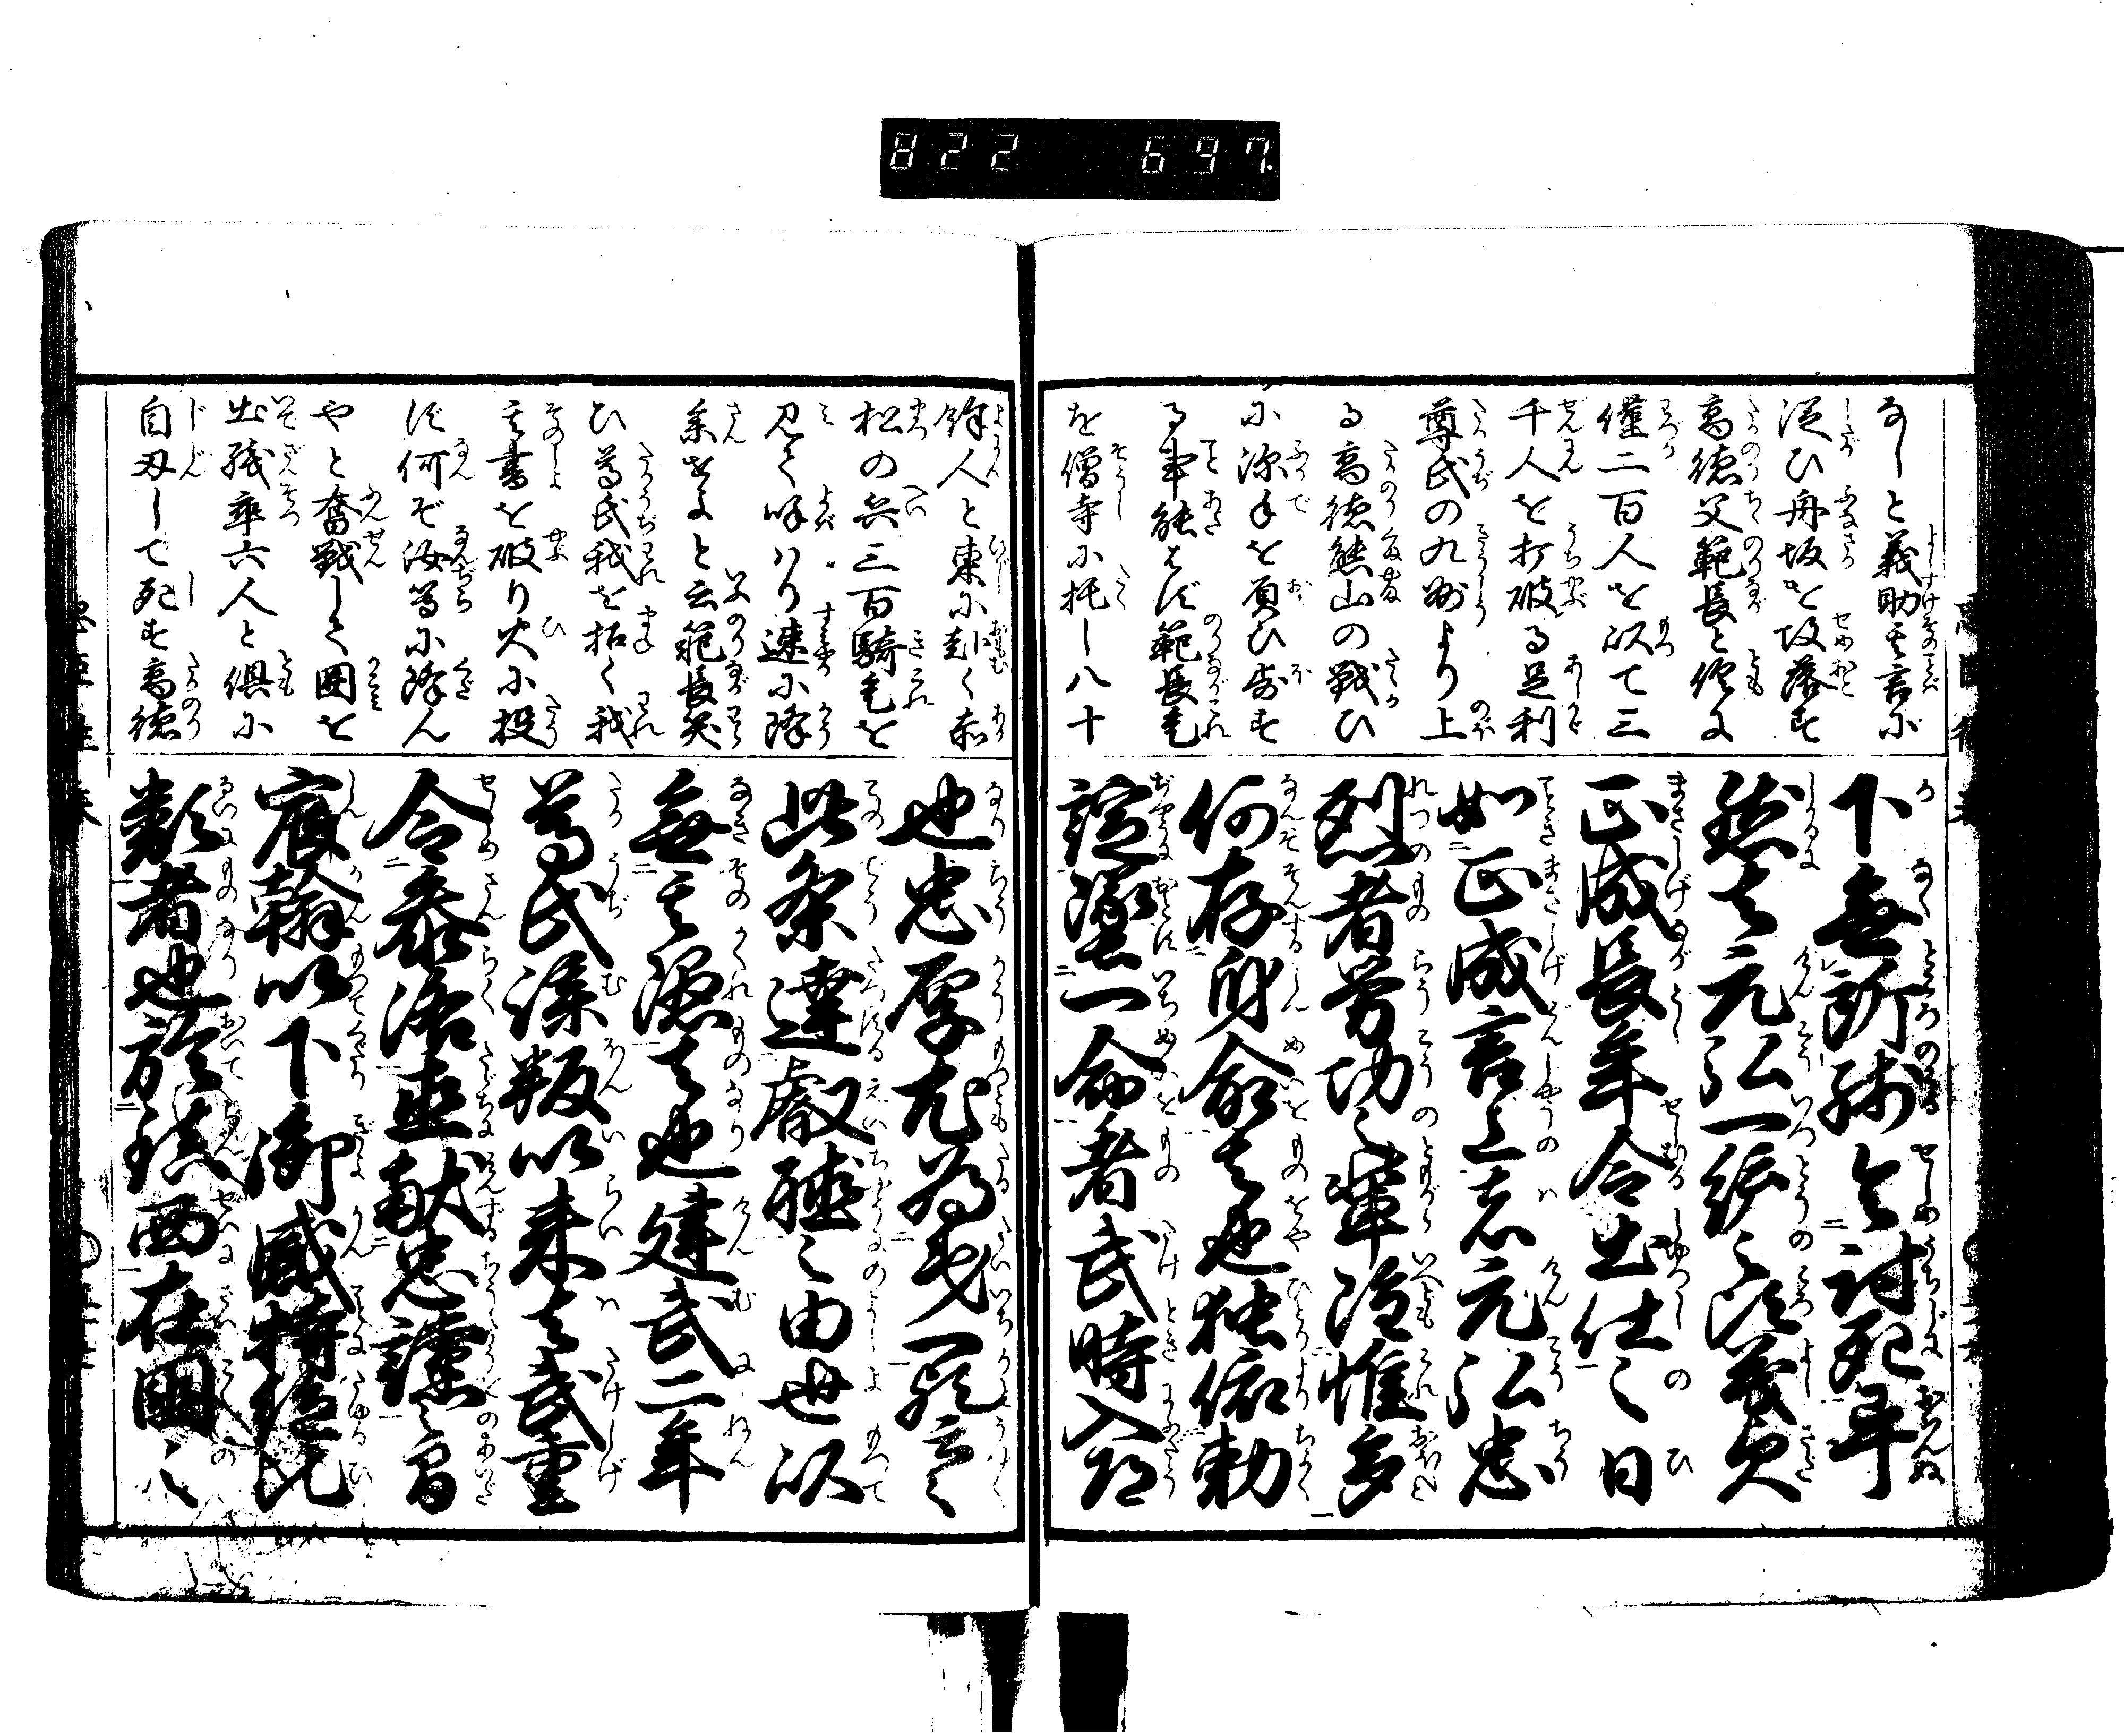 822 697
なしと義助其言に
従ひ舟坂を攻落す
高徳父範長と倶に
僅二百人を以て三
千人を打破る足利
尊氏の九州より上
る高徳熊山の戦ひ
に深手を負ひ
る事能はず範長是
を僧寺に托し八十
下無所残令討死畢
然者元弘一統之次義貞
正成長年令出仕之日
如正成言上者元弘忠
烈者労功之輩雖惟多
何存身命者也独依勅
諚墜一命者武時入道
餘人と東に赴く赤
松の兵三百騎是を
見て呼はり速に降
参せよと云範長笑
ひ尊氏我を招く我
其書を破り火に投
ず何ぞ汝等に降ん
やと奮戦して囲を
出残卒六人と倶に
自刃して死す高徳
也忠厚尤為第一歟云々
此条達叡聴之由世以
無其隠者也建武二年
尊氏謀叛以来者武重
令参洛直献忠謹之間
宸翰以下御感特絶比
類者也於鎮西在国之